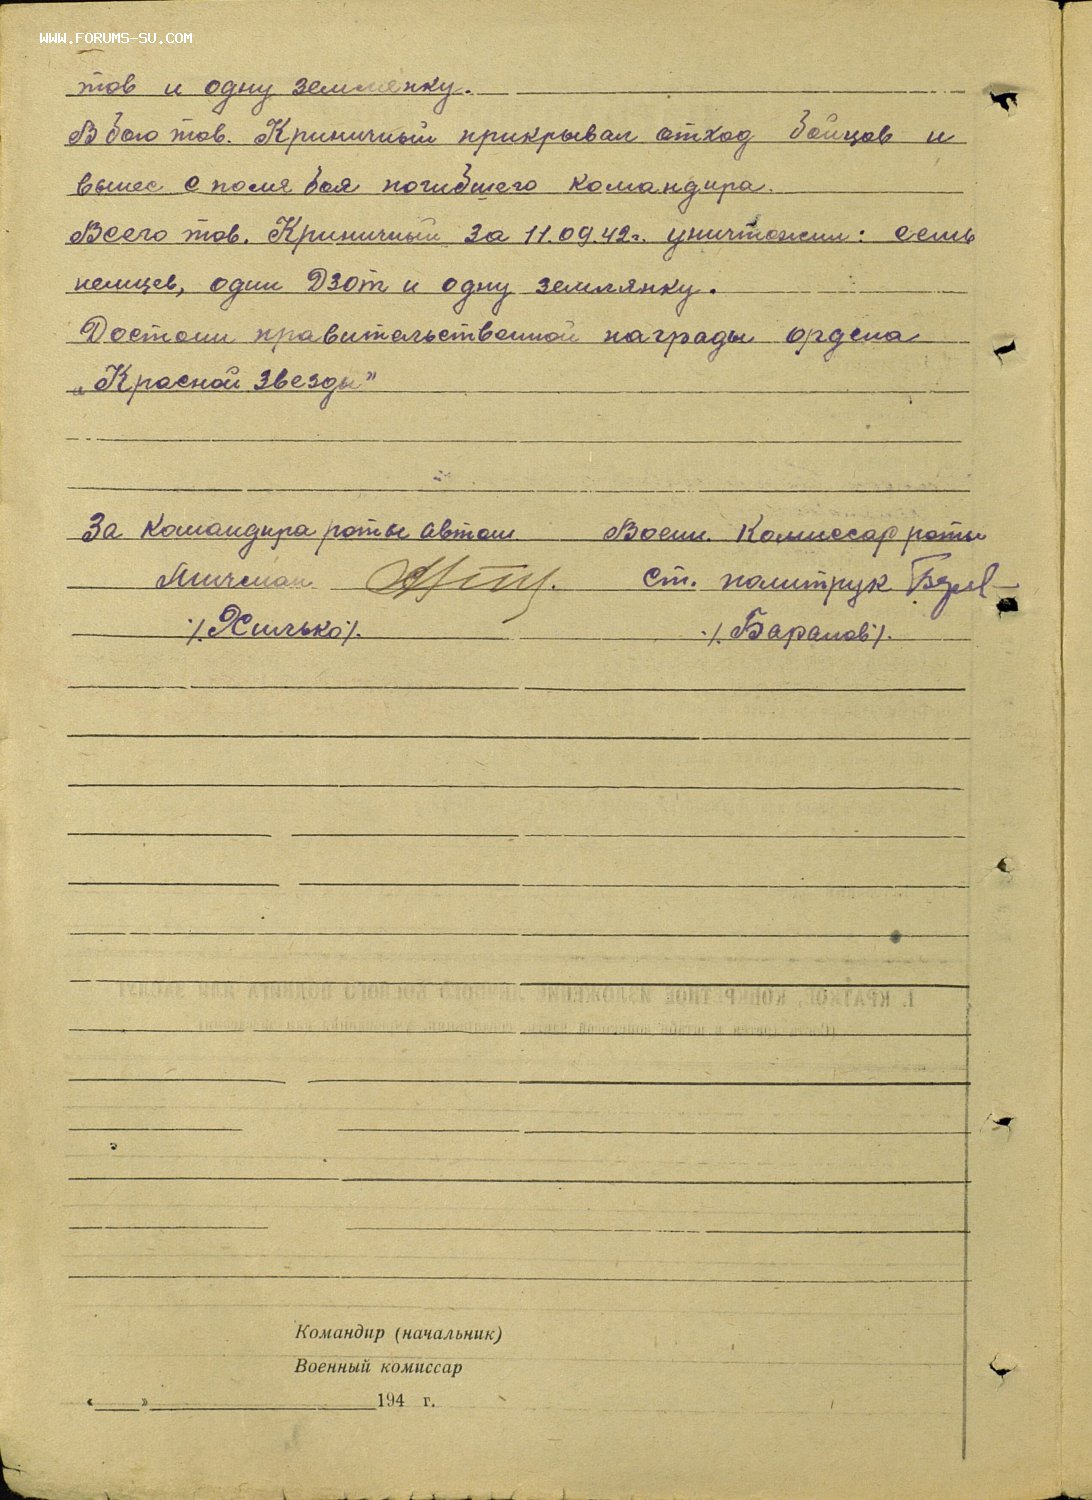 WWW.FORUMS-SU.COM
тов и одну землянку.
В бою тов. Криничный прикрывал отход бойцов и
вынес с поля боя погибшего командира.
Всего тов. Криничный за 11.09.42г. уничтожил: семь
немцев, один ДЗОТ и одну землянку.
Достоин правительственной награды ордена
„Красной Звезды"
За командира роты автом. Воен. Комиссар роты
Мичман ст. политрук
/. Хилько /. /. Баранов /.
1. КРАТКОЕ, КОНКРЕТНОЕ ИЗЛОЖЕНИЕ ЛИЧНОГО БОЕВОГО ПОДВИГА ИЛИ ЗАСЛУГ
Командир (начальник)
Военный комиссар
« » 194 г.